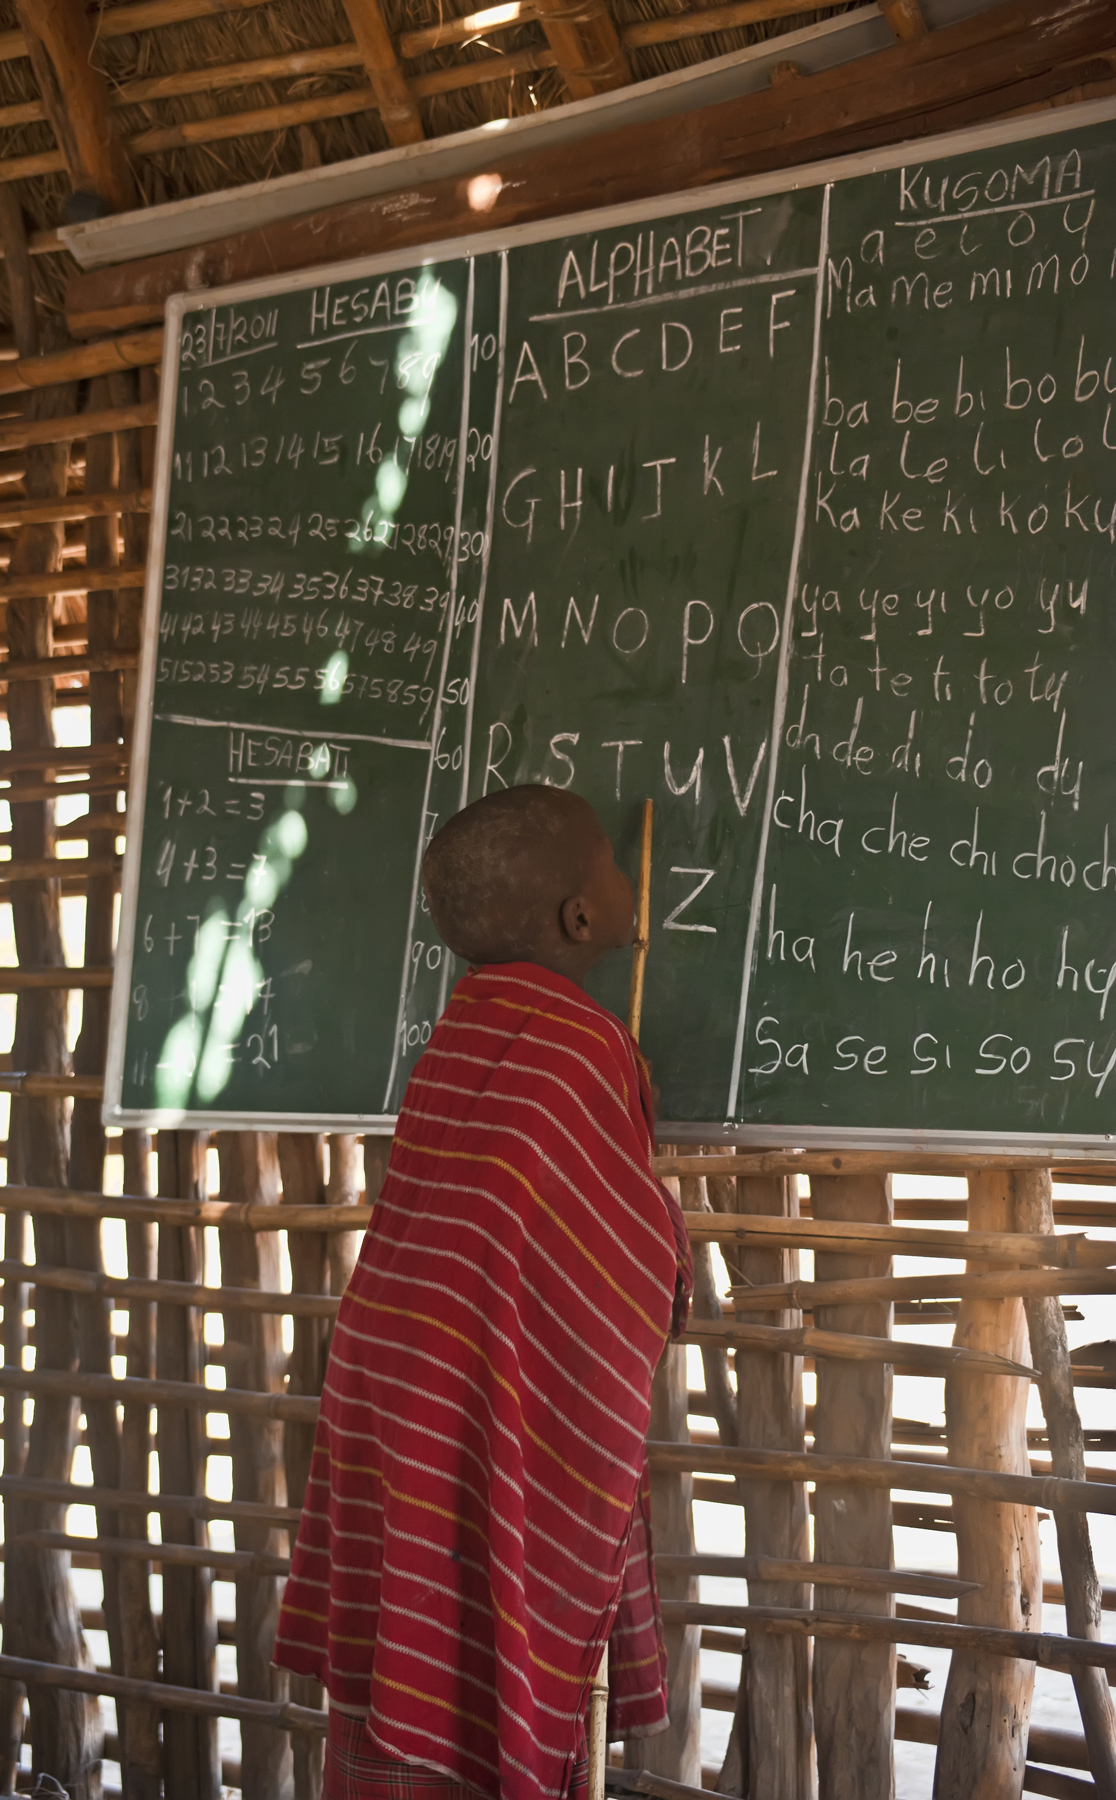 23/7/2011 HESABU
1 2 3 4 5 6 7 8 9 10
11 12 13 14 15 16 17 18 19 20
21 22 23 24 25 26 27 28 29 30
31 32 33 34 35 36 37 38 39 40
41 42 43 44 45 46 47 48 49 50
51 52 53 54 55 56 57 58 59 60
90
100
HESABATI
1+2=3
4+3=7
6+7=13
8 17
11 =21
ALPHABET.
A B C D E F
G H I J K L
M N O P Q
R S T U V
Z
KUSOMA
a e i o u
Ma me mi mo
ba be bi bo bu
la le li lo
Ka Ke Ki Ko Ku
ya ye yi yo yu
ta te ti to tu
da de di do du
cha che chi cho ch
ha he hi ho hu
Sa se si so su